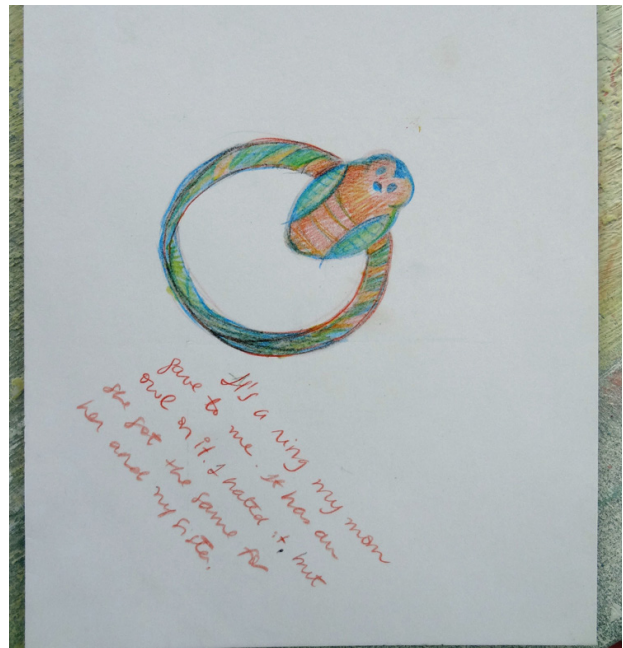 It's a ring my mom
gave to me. It has an
owl on it. I hated it, but
she got the same for
her and my sister.